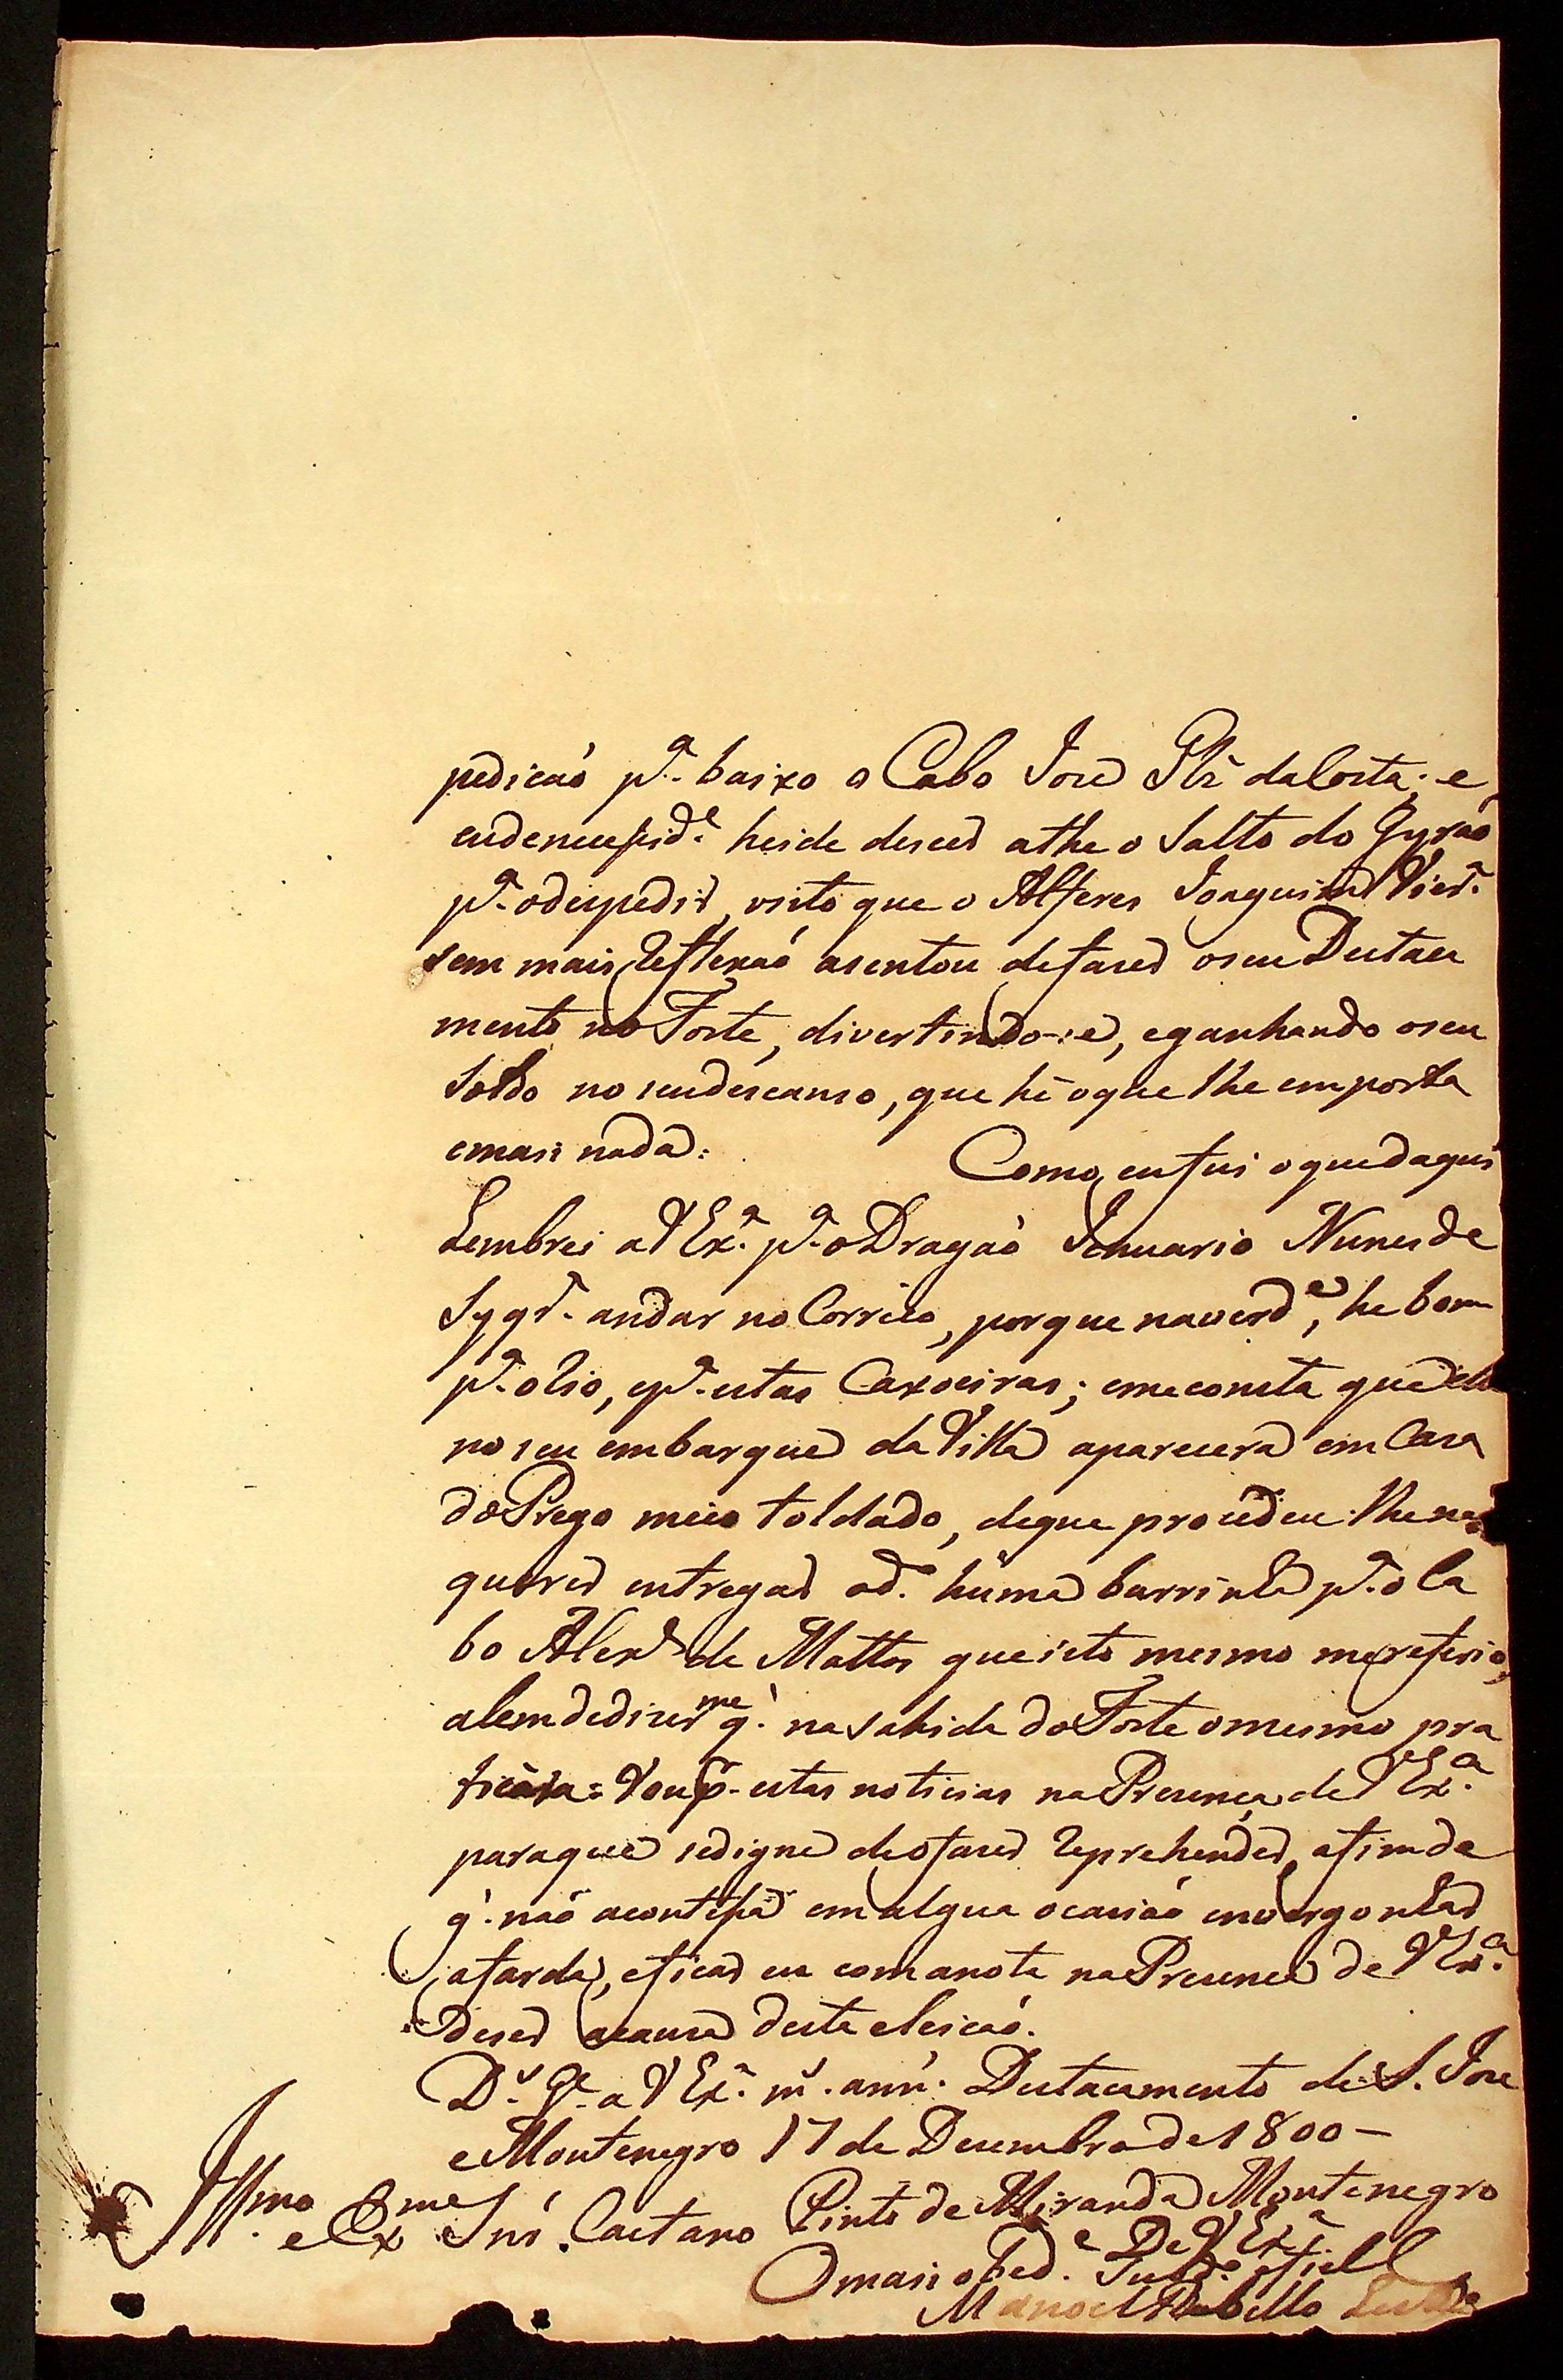 pedicaó p.ª baixo o Cabo Jozé da Costa; e
heide descer athe o Salto do Gyrao
p.ª odespedir, visto que o Alferes Joaquim Vier.ª
sem mais Reflexaó asentou defazer oseu Destaca
mento no Forte, divertindo-se, eganhando oseu
Soldo no seudescanso, que hé oque lhe emporta
emais nada: Como eu fui o quedaqui
Lembrei a VEx.ª p.ª o Dragaó Januario Nunes de
Syqr.ª andar no Correio, porque naverd.e, he bom
p.ª oRio, ep.ª estas Caxoeiras; emeconsta que elle
no seu embarque da Villa aparecera em Casa
do Prego meio toldado, deque procedeu lhe
querer entregar huma barrinha p.ª o Ca
bo Alex.e de Mattos que isto mesmo mereferio,
alemdedizerme q. nasahida do Forte omesmo pra
ticára: estas noticias na Presença de VEx.ª
paraque sedigne deofazer Reprehender, afimde
q. não aconteça em algua ocasiáo envergonhar
afarda, eficar eu comanota na Presença de VEx.ª
Deser acausa desta eleicaó.
D.s G.e a VEx.ª m.s ann.s Destacamento de S. Jozé
e Montenegro 17 de Dezembro de 1800 –
Illmo e Exmo Snr. Caetano Pinto de Miranda Montenegro
De VEx.ª
Omais obed.e Subd.o efiel
Manoel Rebello